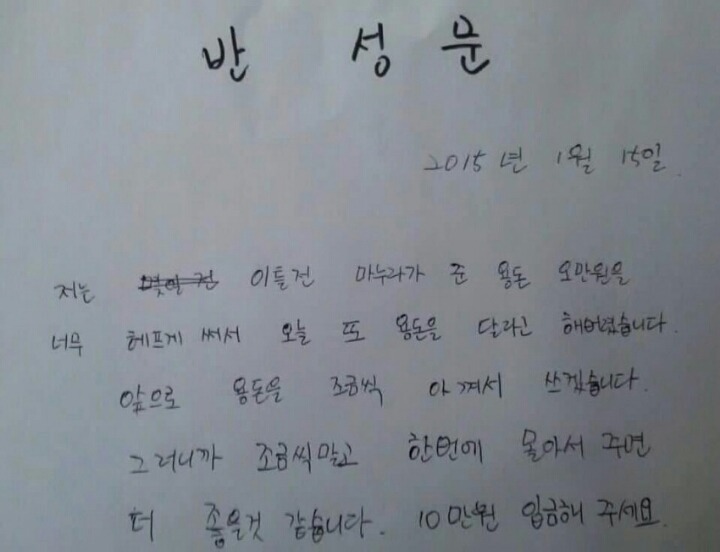 반 성 문
2015년 1월 15일.
저는 몇일 전 이틀전 마누라가 준 용돈 오만원을
너무 헤프게 써서 오늘 또 용돈을 달라고 해버렸습니다.
앞으로 용돈을 조금씩 아껴서 쓰겠습니다.
그러니까 조금씩말고 한번에 몰아서 주면
더 좋을것 같습니다. 10만원 입금해 주세요.